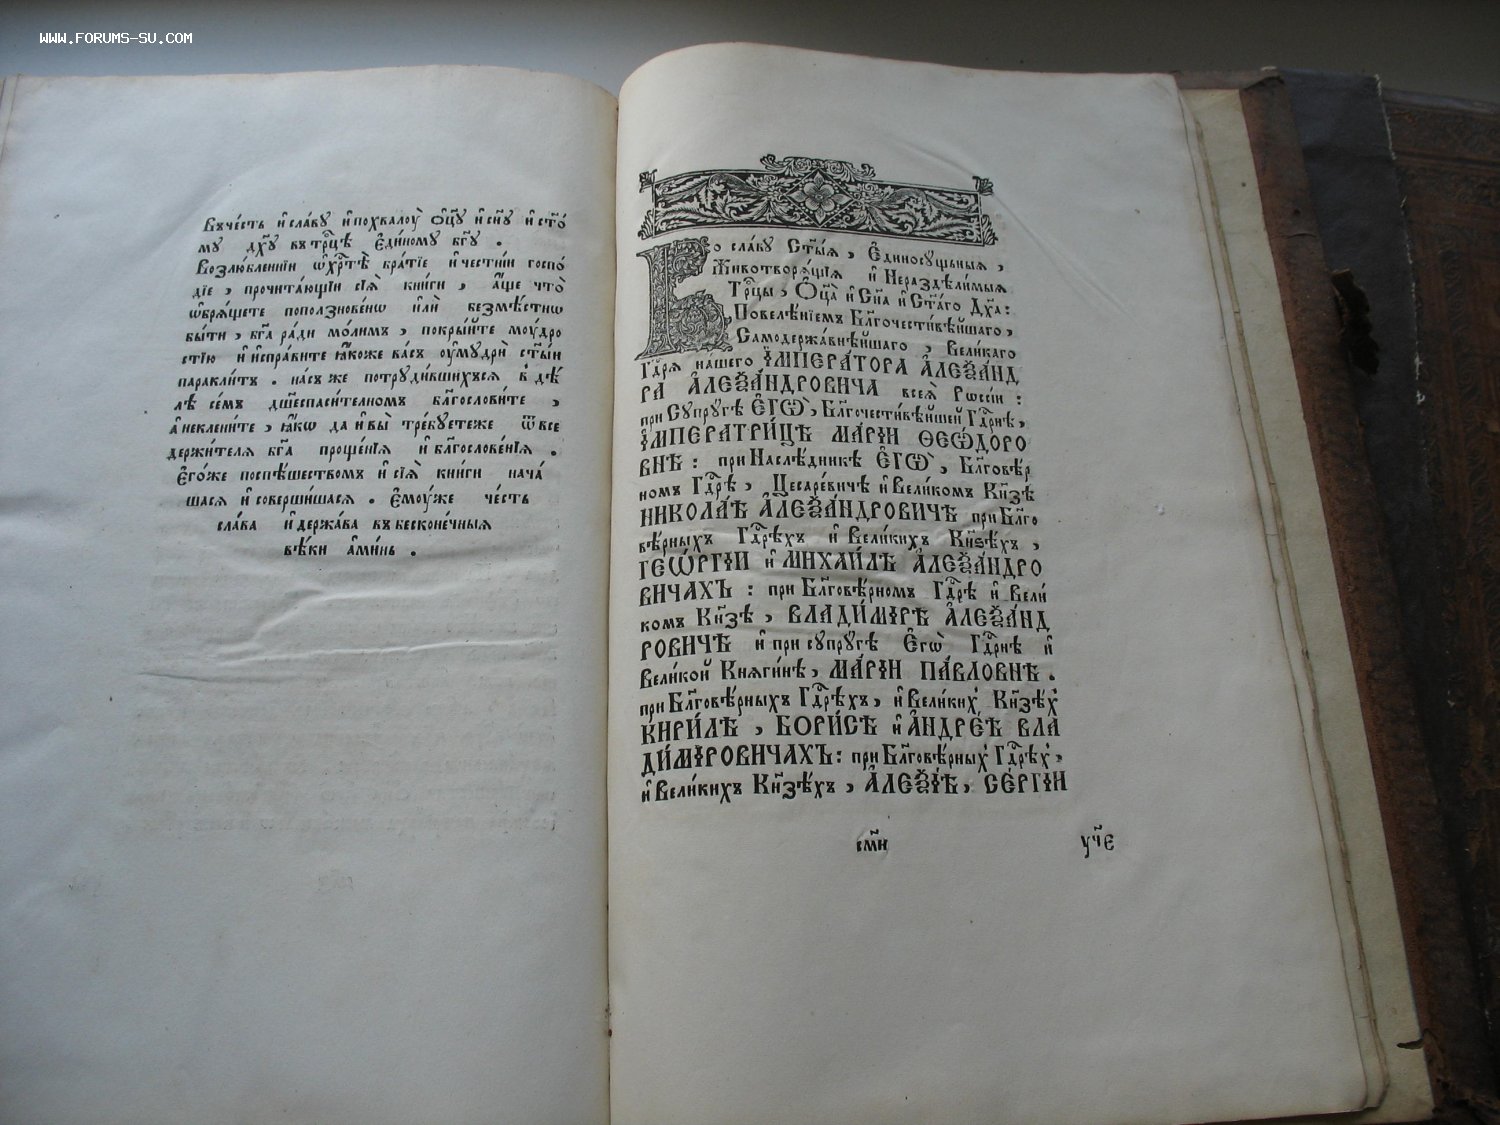 WWW.FORUMS-SU.COM
Въче́сть и҆ сла́ву и҆ похвалоу̀ ѻ҆ц҃у и҆ сн҃у и҆ ст҃о́
му дх҃у въ трⷪ҇цѣ є҆ди́ному бг҃у .
Возлю́бленнїи ѡ҆ хрⷭ҇тѣ̀ бра́тїе и҆ честні́и госпо
дїе , прочита́ющїи сїѧ̀ кни́ги , а҆́ще что̀
ѡ҆брѧ́щете поползнове́нѡ и҆лѝ безмѣ́стнѡ
бы́ти , бг҃а ра́ди мо́лимъ , покры́йте моу́дро
стїю и҆ и҆спра́вите ꙗ҆́коже ва́съ оу҆мудри́ ст҃ы́и
паракли́тъ . на́съ же потруди́вшихъсѧ в дѣ́
лѣ се́мъ дш҃еспаси́телномъ бл҃гослови́те ,
а҆ не клени́те , ꙗ҆́кѡ да и҆ вы̀ тре́буетеже ѿ все
держи́телѧ бг҃а проще́нїѧ и҆ бл҃гослове́нїѧ .
Є҆го́же поспѣ́шествомъ и҆ сїѧ̀ кни́ги нача́
шасѧ и҆ соверши́шасѧ . Є҆моу́же че́сть
сла́ва и҆ держа́ва въ бесконе́чныѧ
вѣ́ки а҆ми́нь .
Во сла́ву Ст҃ы́ѧ , Є҆диносу́щныѧ ,
Животворѧ́щїѧ и҆ Нераздѣли́мыѧ
Трⷪ҇цы , Ѻ҆ц҃а̀ и҆ Сн҃а и҆ Ст҃а́го Дх҃а :
Повелѣ́нїемъ Бл҃гочести́вѣйшаго ,
Самодержа́внѣйшаго , Вели́каго
Гдⷭ҇рѧ на́шего І҆МПЕРА́ТОРА А҆ЛЕѮА́НД
РА А҆ЛЕѮА́НДРОВИЧА всеѧ̀ Рѡссі́и :
при Супру́гѣ Є҆ГѠ̀ , Бл҃гочести́вѣйшей Гдⷭ҇рнѣ ,
І҆МПЕРАТРИ́ЦѢ МАРІ́И ѲЕѠ́ДОРО
ВНѢ : при Наслѣ́дникѣ Є҆ГѠ̀ , Бл҃говѣ́р
номъ Гдⷭ҇рѣ , Цесаре́вичѣ и҆ Вели́комъ Кн҃зѣ
НИКОЛА́Ѣ А҆ЛЕѮА́НДРОВИЧѢ при Бл҃го
вѣ́рныхъ Гдⷭ҇рѣхъ и҆ Вели́кихъ Кн҃зѣхъ ,
ГЕѠ́РГІИ и҆ МИХАИ́ЛѢ А҆ЛЕѮА́НДРО
ВИЧАХЪ : при Бл҃говѣ́рномъ Гдⷭ҇рѣ и҆ Вели́
комъ Кн҃зѣ , ВЛАДИ́МІРѢ А҆ЛЕѮА́НД
РОВИЧѢ и҆ при супру́гѣ Є҆гѡ̀ Гдⷭ҇рнѣ и҆
Вели́кой Кнѧги́нѣ , МАРІ́И ПА́ВЛОВНѢ .
при Бл҃говѣ́рныхъ Гдⷭ҇рѣхъ , и҆ Вели́ких Кн҃зѣх
КИРИ́ЛѢ , БОРИ́СѢ и҆ А҆НДРЕ́Ѣ ВЛА
ДИ́МІРОВИЧАХЪ : при Бл҃говѣ́рных Гдⷭ҇рѣх ,
и҆ Вели́кихъ Кн҃зѣхъ , А҆ЛЕѮІ́Ѣ , СЕ́РГІИ
смн҃ уч҃є